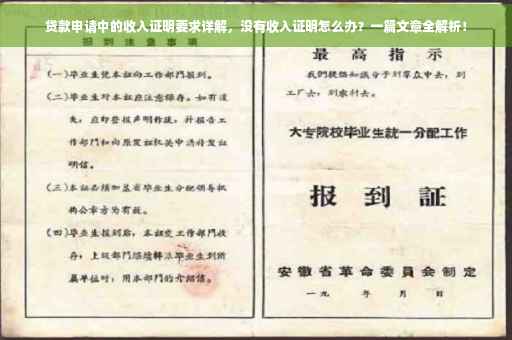 贷款申请中的收入证明要求详解，没有收入证明怎么办？一篇文章全解析！
报到注意事项
(一)毕业生凭本证向工作部门报到。
(二)毕业生对本证应注意保存。如有遗
失，应即登报声明作废，并报告工
作部门和向原发证机关申请补发证
明信。
(三)本证必须加盖省毕业生分配领导机
构公章方为有效。
(四)毕业生报到后，本证交工作部门收
存；上级部门继续转派毕业生到所
属单位时，用本部门的介绍信。
最高指示
我们提倡知识分子到群众中去，到
工厂去，到农村去。
大专院校毕业生统一分配工作
报到证
安徽省革命委员会制定
一九 年 月 日